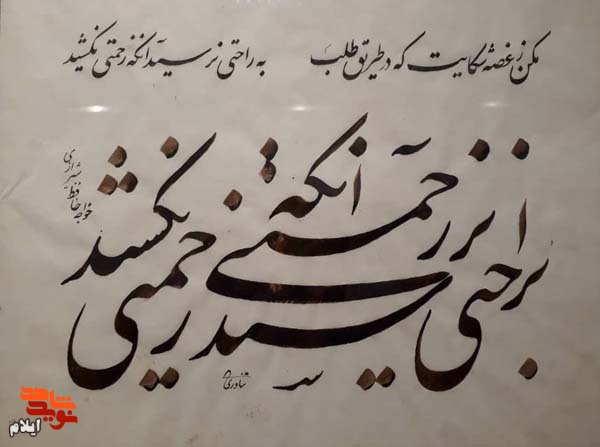 مکن ز غصه شکایت که در طریق طلب به راحتی نرسید آنکه زحمتی نکشید
براحتی نرسید آنکه زحمتی نکشید
خواجه حافظ شیرازی
نوید شاهد
ایلام